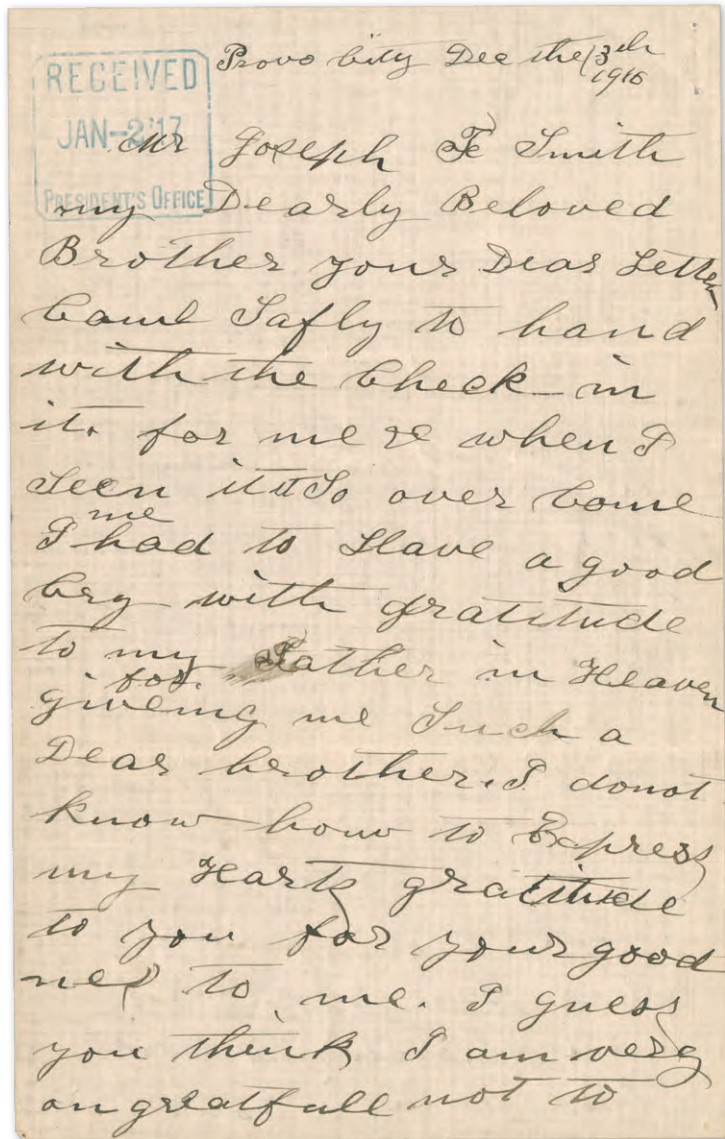 RECEIVED
JAN-2'17
PRESIDENT'S OFFICE
Provo City Dec the 13th
1916
Mr Joseph F Smith
my Dearly Beloved
Brother your Dear Letter
Came Safly to hand
with the Check in
it. for me & when I
Seen it it So over Come
me
I had to Have a good
Cry with gratitude
to my Father in Heaven
for
giveing me Such a
Dear brother. I donot
know how to Express
my Harts gratitude
to you for your good
ness to me. I guess
you think I am very
ongreatfull not to